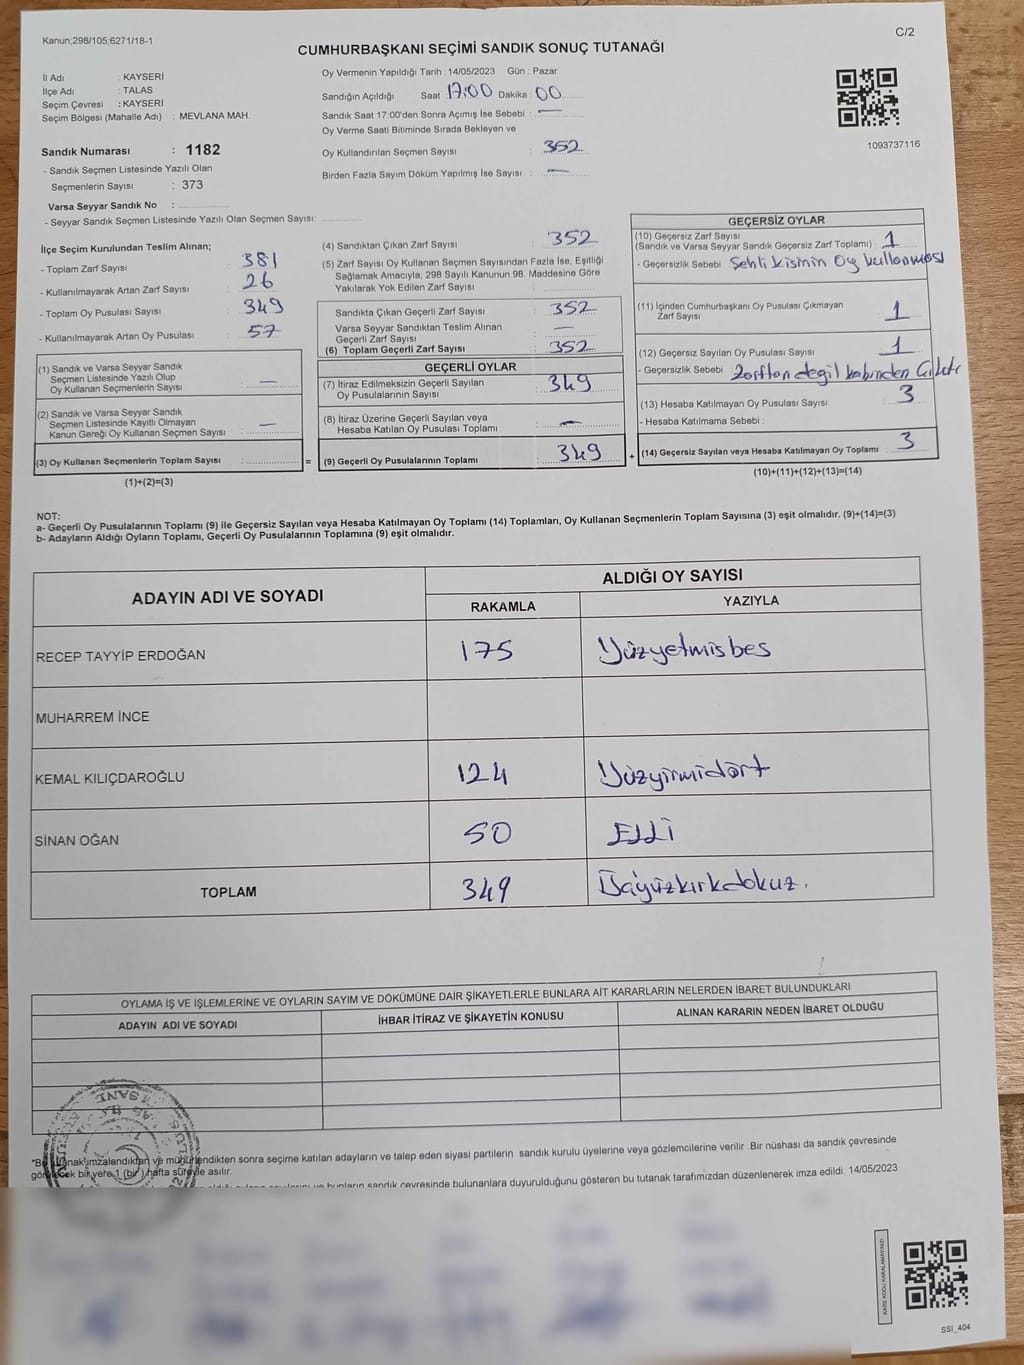 Kanun;298/105;6271/18-1
C/2
CUMHURBAŞKANI SEÇİMİ SANDIK SONUÇ TUTANAĞI
İl Adı : KAYSERİ
İlçe Adı : TALAS
Seçim Çevresi : KAYSERİ
Seçim Bölgesi (Mahalle Adı) : MEVLANA MAH.
Sandık Numarası : 1182
- Sandık Seçmen Listesinde Yazılı Olan
Seçmenlerin Sayısı : 373
Varsa Seyyar Sandık No :
- Seyyar Sandık Seçmen Listesinde Yazılı Olan Seçmen Sayısı:
Oy Vermenin Yapıldığı Tarih :14/05/2023 Gün : Pazar
Sandığın Açıldığı Saat 17:00 Dakika 00
Sandık Saat 17:00'den Sonra Açımış İse Sebebi : —
Oy Verme Saati Bitiminde Sırada Bekleyen ve
Oy Kullandırılan Seçmen Sayısı : 352
Birden Fazla Sayım Döküm Yapılmış İse Sayısı : —
1093737116
İlçe Seçim Kurulundan Teslim Alınan;
- Toplam Zarf Sayısı : 381
- Kullanılmayarak Artan Zarf Sayısı : 26
- Toplam Oy Pusulası Sayısı : 349
- Kullanılmayarak Artan Oy Pusulası : 57
(1) Sandık ve Varsa Seyyar Sandık
Seçmen Listesinde Yazılı Olup
Oy Kullanan Seçmenlerin Sayısı : —
(2) Sandık ve Varsa Seyyar Sandık
Seçmen Listesinde Kayıtlı Olmayan
Kanun Gereği Oy Kullanan Seçmen Sayısı : —
(3) Oy Kullanan Seçmenlerin Toplam Sayısı :
(1)+(2)=(3)
(4) Sandıktan Çıkan Zarf Sayısı : 352
(5) Zarf Sayısı Oy Kullanan Seçmen Sayısından Fazla İse, Eşitliği
Sağlamak Amacıyla; 298 Sayılı Kanunun 98. Maddesine Göre
Yakılarak Yok Edilen Zarf Sayısı :
Sandıkta Çıkan Geçerli Zarf Sayısı : 352
Varsa Seyyar Sandıktan Teslim Alınan
Geçerli Zarf Sayısı : —
(6) Toplam Geçerli Zarf Sayısı : 352
GEÇERLİ OYLAR
(7) İtiraz Edilmeksizin Geçerli Sayılan
Oy Pusulalarının Sayısı : 349
(8) İtiraz Üzerine Geçerli Sayılan veya
Hesaba Katılan Oy Pusulası Toplamı : —
= (9) Geçerli Oy Pusulalarının Toplamı : 349 +
GEÇERSİZ OYLAR
(10) Geçersiz Zarf Sayısı
(Sandık ve Varsa Seyyar Sandık Geçersiz Zarf Toplamı) : 1
- Geçersizlik Sebebi : Sehli kisinin Oy kullanması
(11) İçinden Cumhurbaşkanı Oy Pusulası Çıkmayan
Zarf Sayısı : 1
(12) Geçersiz Sayılan Oy Pusulası Sayısı : 1
- Geçersizlik Sebebi : Zarftan degil kabinden Çıktı
(13) Hesaba Katılmayan Oy Pusulası Sayısı : 3
- Hesaba Katılmama Sebebi :
(14) Geçersiz Sayılan veya Hesaba Katılmayan Oy Toplamı : 3
(10)+(11)+(12)+(13)=(14)
NOT:
a- Geçerli Oy Pusulalarının Toplamı (9) ile Geçersiz Sayılan veya Hesaba Katılmayan Oy Toplamı (14) Toplamları, Oy Kullanan Seçmenlerin Toplam Sayısına (3) eşit olmalıdır. (9)+(14)=(3)
b- Adayların Aldığı Oyların Toplamı, Geçerli Oy Pusulalarının Toplamına (9) eşit olmalıdır.
ADAYIN ADI VE SOYADI ALDIĞI OY SAYISI
RAKAMLA YAZIYLA
RECEP TAYYİP ERDOĞAN 175 Yüzyetmisbes
MUHARREM İNCE
KEMAL KILIÇDAROĞLU 124 Yüzyirmidört
SİNAN OĞAN 50 Elli
TOPLAM 349 Üçyüzkırkdokuz.
OYLAMA İŞ VE İŞLEMLERİNE VE OYLARIN SAYIM VE DÖKÜMÜNE DAİR ŞİKAYETLERLE BUNLARA AİT KARARLARIN NELERDEN İBARET BULUNDUKLARI
ADAYIN ADI VE SOYADI İHBAR İTİRAZ VE ŞİKAYETİN KONUSU ALINAN KARARIN NEDEN İBARET OLDUĞU
*Bu tutanak imzalandıktan ve mühürlendikten sonra seçime katılan adayların ve talep eden siyasi partilerin sandık kurulu üyelerine veya gözlemcilerine verilir .Bir nüshası da sandık çevresinde
görülecek bir yere 1 (bir ) hafta süreyle asılır.
ve bunların sandık çevresinde bulunanlara duyurulduğunu gösteren bu tutanak tarafımızdan düzenlenerek imza edildi. 14/05/2023
KARE KODU KARALAMAYINIZ!
SSI_404